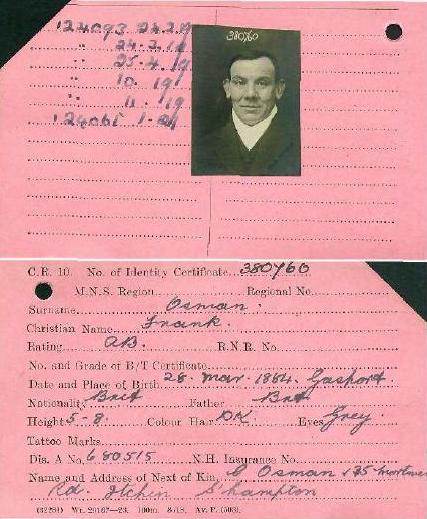 124093 24.2.19
" 24.2.19
" 25.4.19
" 10 19
" 11.19
124065 1-21
380760
C.R. 10. No. of Identity Certificate 380760
M.N.S. Region Regional No.
Surname Osman.
Christian Name Frank.
Rating AB. R.N.R. No.
No. and Grade of B/T Certificate
Date and Place of Birth 28. Mar. 1884. Gosport.
Nationality Brit Father Brit
Height 5-8. Colour Hair DK Eyes Grey.
Tattoo Marks
Dis. A No. 680515 N.H. Insurance No.
Name and Address of Next of Kin G Osman 135
Rd. Itchen S'hampton
100m. 8/18. Av. P. (503).